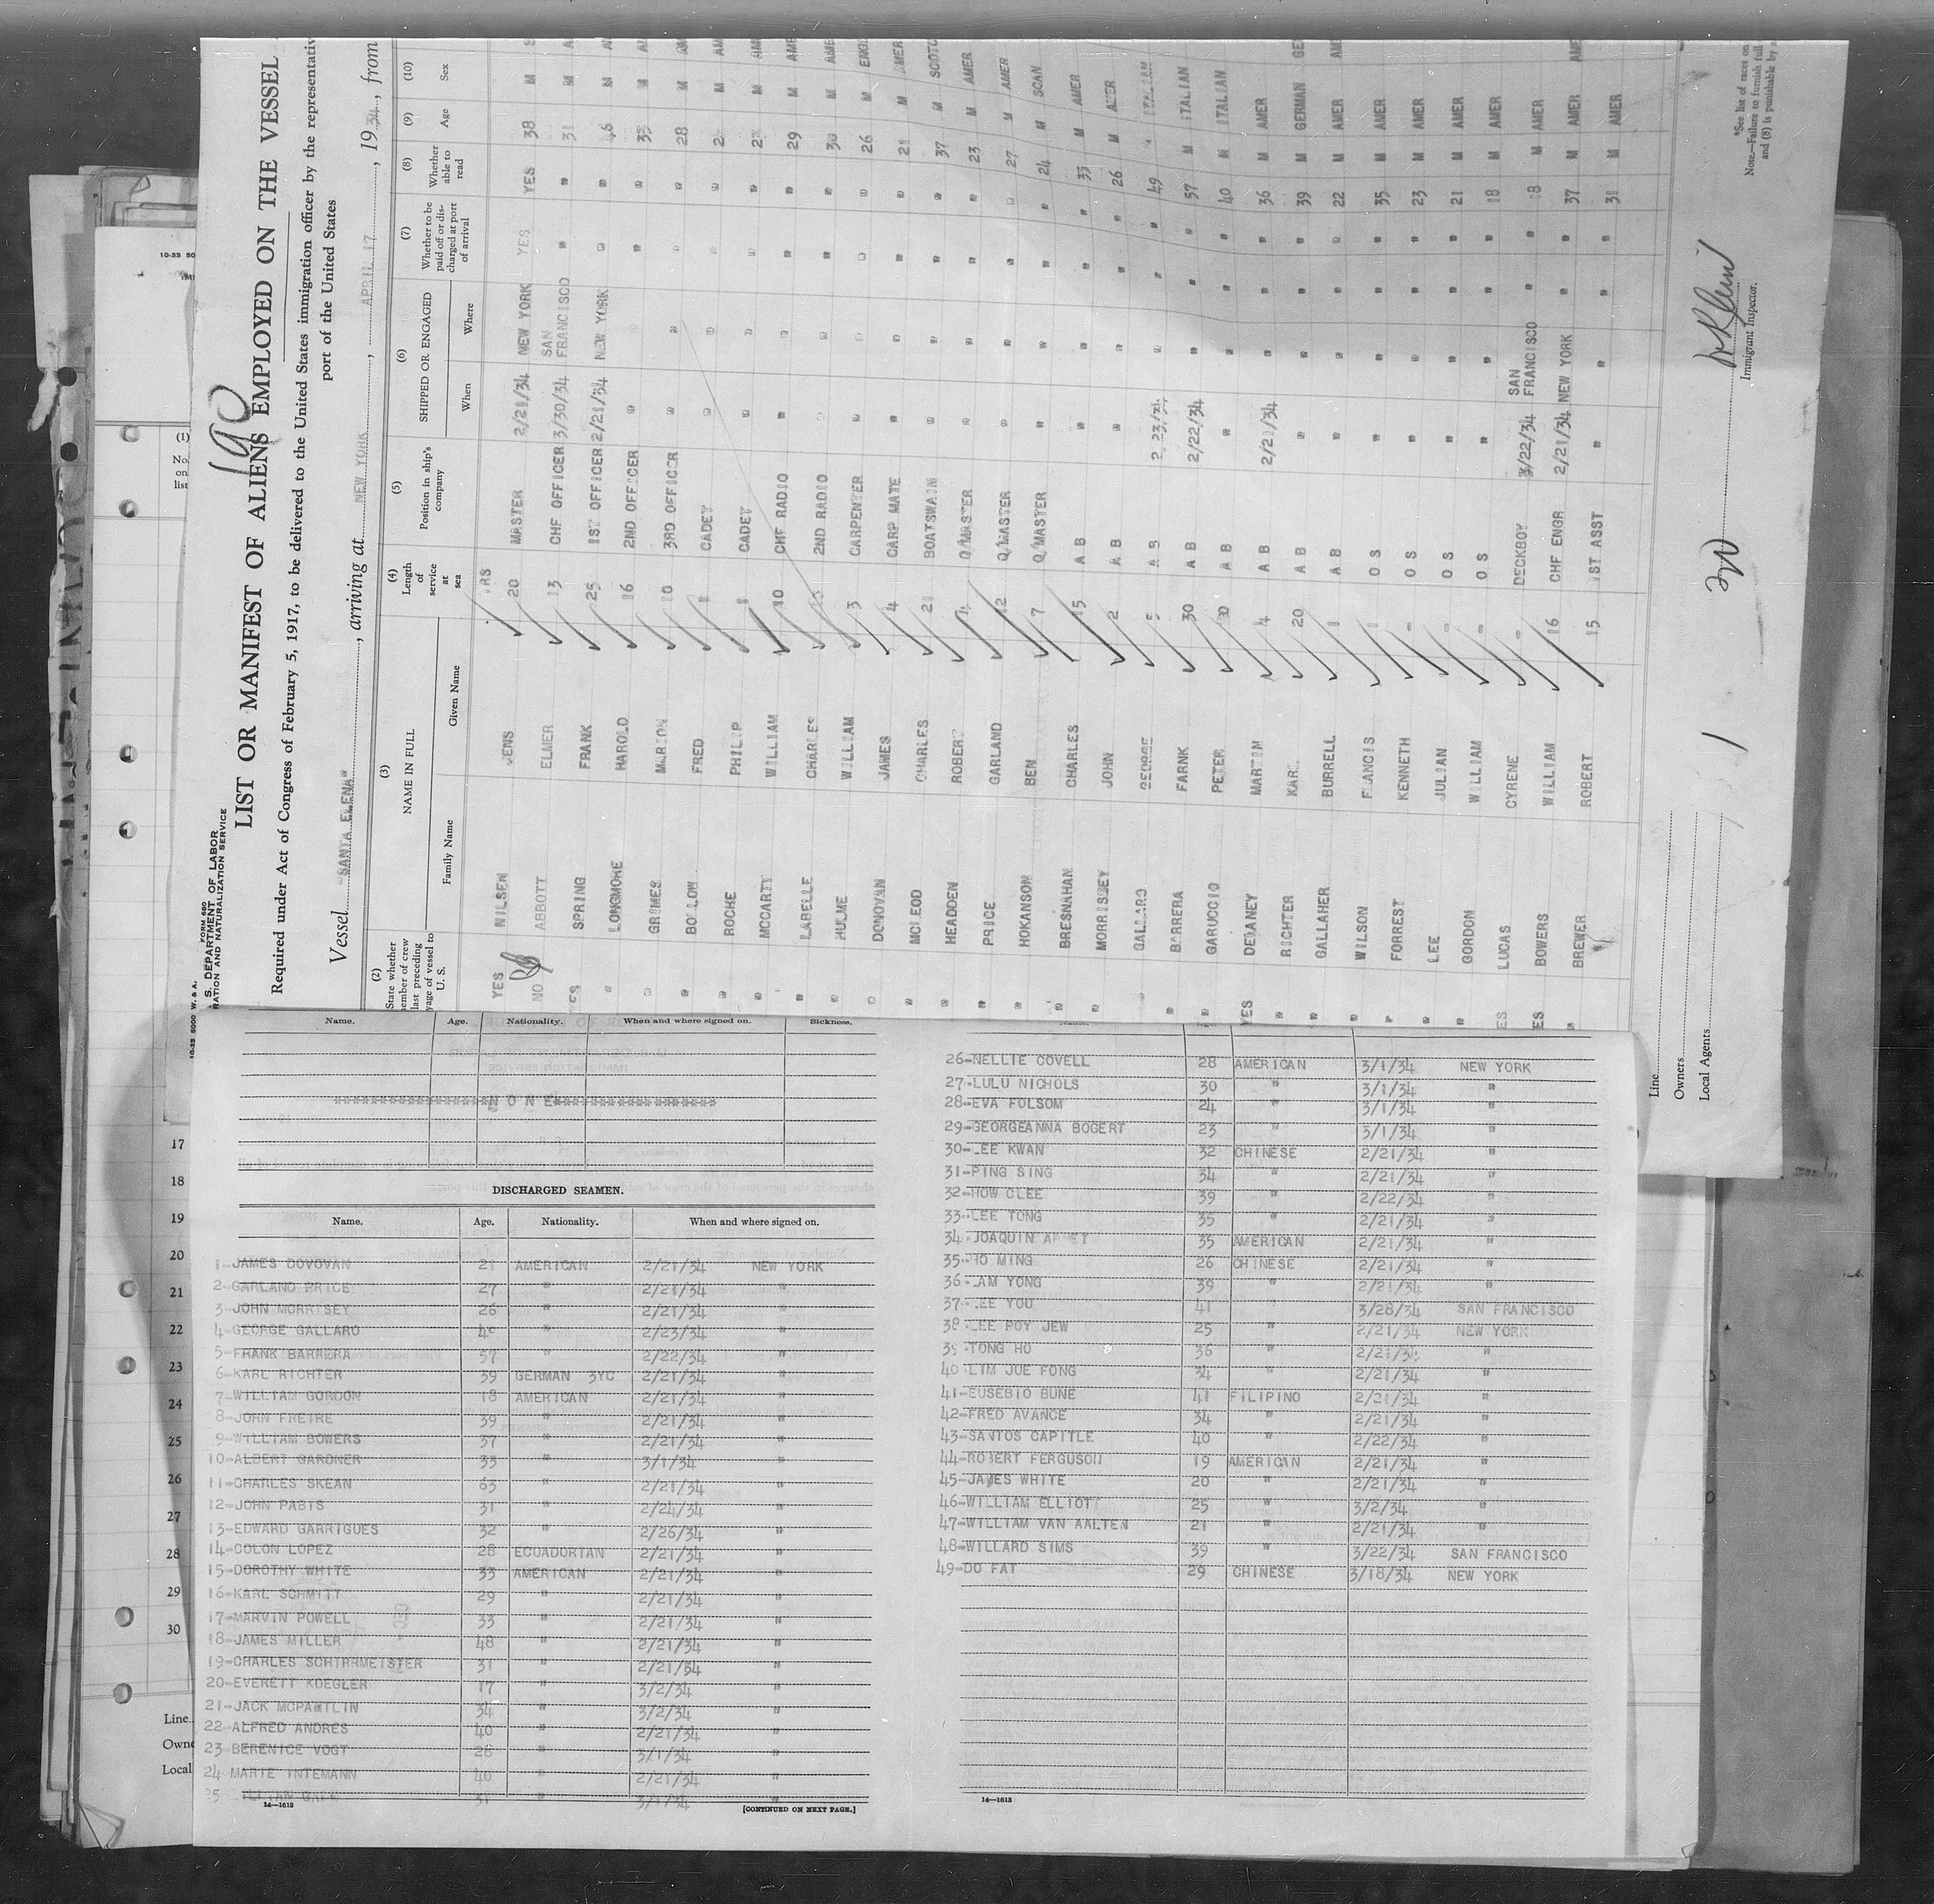 190
FORM 680
S. DEPARTMENT OF LABOR
RATION AND NATURALIZATION SERVICE
LIST OR MANIFEST OF ALIENS EMPLOYED ON THE VESSEL
Required under Act of Congress of February 5, 1917, to be delivered to the United States immigration officer by the representativ
port of the United States
Vessel "SANTA ELENA" , arriving at NEW YORK , APRIL 17 , 1934 , from
(2) State whether member of crew last preceding voyage of vessel to U. S.
(3) NAME IN FULL
Family Name Given Name
(4) Length of service at sea
(5) Position in ship's company
(6) SHIPPED OR ENGAGED
When Where
(7) Whether to be paid off or discharged at port of arrival
(8) Whether able to read
(9) Age
(10) Sex
YRS
YES NILSEN JENS 20 MASTER 2/21/34 NEW YORK YES YES 38 M
NO ABBOTT ELMER 13 CHF OFFICER 3/30/34 SAN FRANCISCO " " 31 M
YES SPRING FRANK 25 1ST OFFICER 2/21/34 NEW YORK " " 46 M
" LONGMORE HAROLD 16 2ND OFFICER " " " " 33 M
" GRIMES MARION 10 3RD OFFICER " " " " 28 M
" BOLLOW FRED 1 CADET " " " " M
" ROCHE PHILIP 1 CADET " " " " M
" MCCARTY WILLIAM 10 CHF RADIO " " " " 29 M AME
" LABELLE CHARLES 2ND RADIO " " " " 30 M AME
" HULME WILLIAM 3 CARPENTER " " " " 26 M ENGL
" DONOVAN JAMES 4 CARP MATE " " " " 21 M AMER
" MCLEOD CHARLES 21 BOATSWAIN " " " " 37 M SCOTC
" HEADDEN ROBERT 4 Q/MASTER " " " " 23 M AMER
" PRICE GARLAND 12 Q/MASTER " " " " 27 M AMER
" HOKANSON BEN 7 Q/MASTER " " " " 24 M SCAN
" BRESNAHAN CHARLES 15 A B " " " " 33 M AMER
" MORRISSEY JOHN 2 A B " " " " 26 M AMER
GALLARO GEORGE 5 A B 2/23/34 " " " 49 ITALIAN
" BARRERA FARNK 30 A B 2/22/34 " " " 57 M ITALIAN
" GARUCCIO PETER 30 A B " " " " 40 M ITALIAN
YES DELANEY MARTIN 4 A B 2/21/34 " " " 36 M AMER
" RICHTER KARL 20 A B " " " " 39 M GERMAN GE
" GALLAHER BURRELL 1 A B " " " " 22 M AMER AM
" WILSON FRANCIS 1 O S " " " " 35 M AMER
" FORREST KENNETH - O S " " " " 23 M AMER
" LEE JULIAN - O S " " " " 21 M AMER
" GORDON WILLIAM - O S " " " " 18 M AMER
YES LUCAS CYRENE - DECKBOY 3/22/34 SAN FRANCISCO " " 18 M AMER
YES BOWERS WILLIAM 16 CHF ENGR 2/21/34 NEW YORK " " 37 M AMER AME
" BREWER ROBERT 15 1ST ASST " " " " 31 M AMER
Line
Owners
Local Agents
Immigrant Inspector.
*See list of races on
Note.—Failure to furnish full
and (8) is punishable by a
10-33 5000 W. & A.
10-33 50
(1)
No.
on
list
17
18
19
20
21
22
23
24
25
26
27
28
29
30
Line
Owne
Local
Name. Age. Nationality. When and where signed on. Sickness.
NONE
DISCHARGED SEAMEN.
Name. Age. Nationality. When and where signed on.
1-JAMES DOVOVAN 21 AMERICAN 2/21/34 NEW YORK
2-GARLAND PRICE 27 " 2/21/34 "
3-JOHN MORRISEY 26 " 2/21/34 "
4-GEORGE GALLARO " 2/23/34 "
5-FRANK BARRERA 57 " 2/22/34 "
6-KARL RICHTER 39 GERMAN 3YC 2/21/34 "
7-WILLIAM GORDON 18 AMERICAN 2/21/34 "
8-JOHN FREIRE 39 " 2/21/34 "
9-WILLIAM BOWERS 37 " 2/21/34 "
10-ALBERT GARDNER 33 " 3/1/34 "
11-CHARLES SKEAN 63 " 2/21/34 "
12-JOHN PABTS 31 " 2/24/34 "
13-EDWARD GARRIGUES 32 " 2/26/34 "
14-COLON LOPEZ 28 ECUADORIAN 2/21/34 "
15-DOROTHY WHITE 33 AMERICAN 2/21/34 "
16-KARL SCHMITT 29 " 2/21/34 "
17-MARVIN POWELL 33 " 2/21/34 "
18-JAMES MILLER 48 " 2/21/34 "
19-CHARLES SCHIRRMEISTER 31 " 2/21/34 "
20-EVERETT KOEGLER 17 " 3/2/34 "
21-JACK MCPARTLIN 34 " 3/2/34 "
22-ALFRED ANDRES 40 " 2/21/34 "
23 BERENICE VOGT 28 " 3/1/34 "
24 MARIE INTEMANN 40 " 2/21/34 "
25 31 " 3/1/34 "
14—1613 [CONTINUED ON NEXT PAGE.]
26-NELLIE COVELL 28 AMERICAN 3/1/34 NEW YORK
27-LULU NICHOLS 30 " 3/1/34 "
28-EVA FOLSOM 24 " 3/1/34 "
29-GEORGEANNA BOGERT 23 " 3/1/34 "
30-LEE KWAN 32 CHINESE 2/21/34 "
31-PING SING 34 " 2/21/34 "
32-HOW CLEE 39 " 2/22/34 "
33-LEE TONG 35 " 2/21/34 "
34-JOAQUIN 35 AMERICAN 2/21/34 "
35-HO MING 26 CHINESE 2/21/34 "
36-LAM YONG 39 " 2/21/34 "
37-LEE YOU 41 " 3/28/34 SAN FRANCISCO
38-LEE POY JEW 25 " 2/21/34 NEW YORK
39-TONG HO 36 " 2/21/34 "
40-LIM JUE FONG 34 " 2/21/34 "
41-EUSEBIO BUNE 41 FILIPINO 2/21/34 "
42-FRED AVANCE 34 " 2/21/34 "
43-SANTOS CAPITLE 40 " 2/22/34 "
44-ROBERT FERGUSON 19 AMERICAN 2/21/34 "
45-JAMES WHITE 20 " 2/21/34 "
46-WILLIAM ELLIOTT 25 " 3/2/34 "
47-WILLIAM VAN AALTEN 21 " 2/21/34 "
48-WILLARD SIMS 39 " 3/22/34 SAN FRANCISCO
49-DO FAT 29 CHINESE 3/18/34 NEW YORK
14—1613